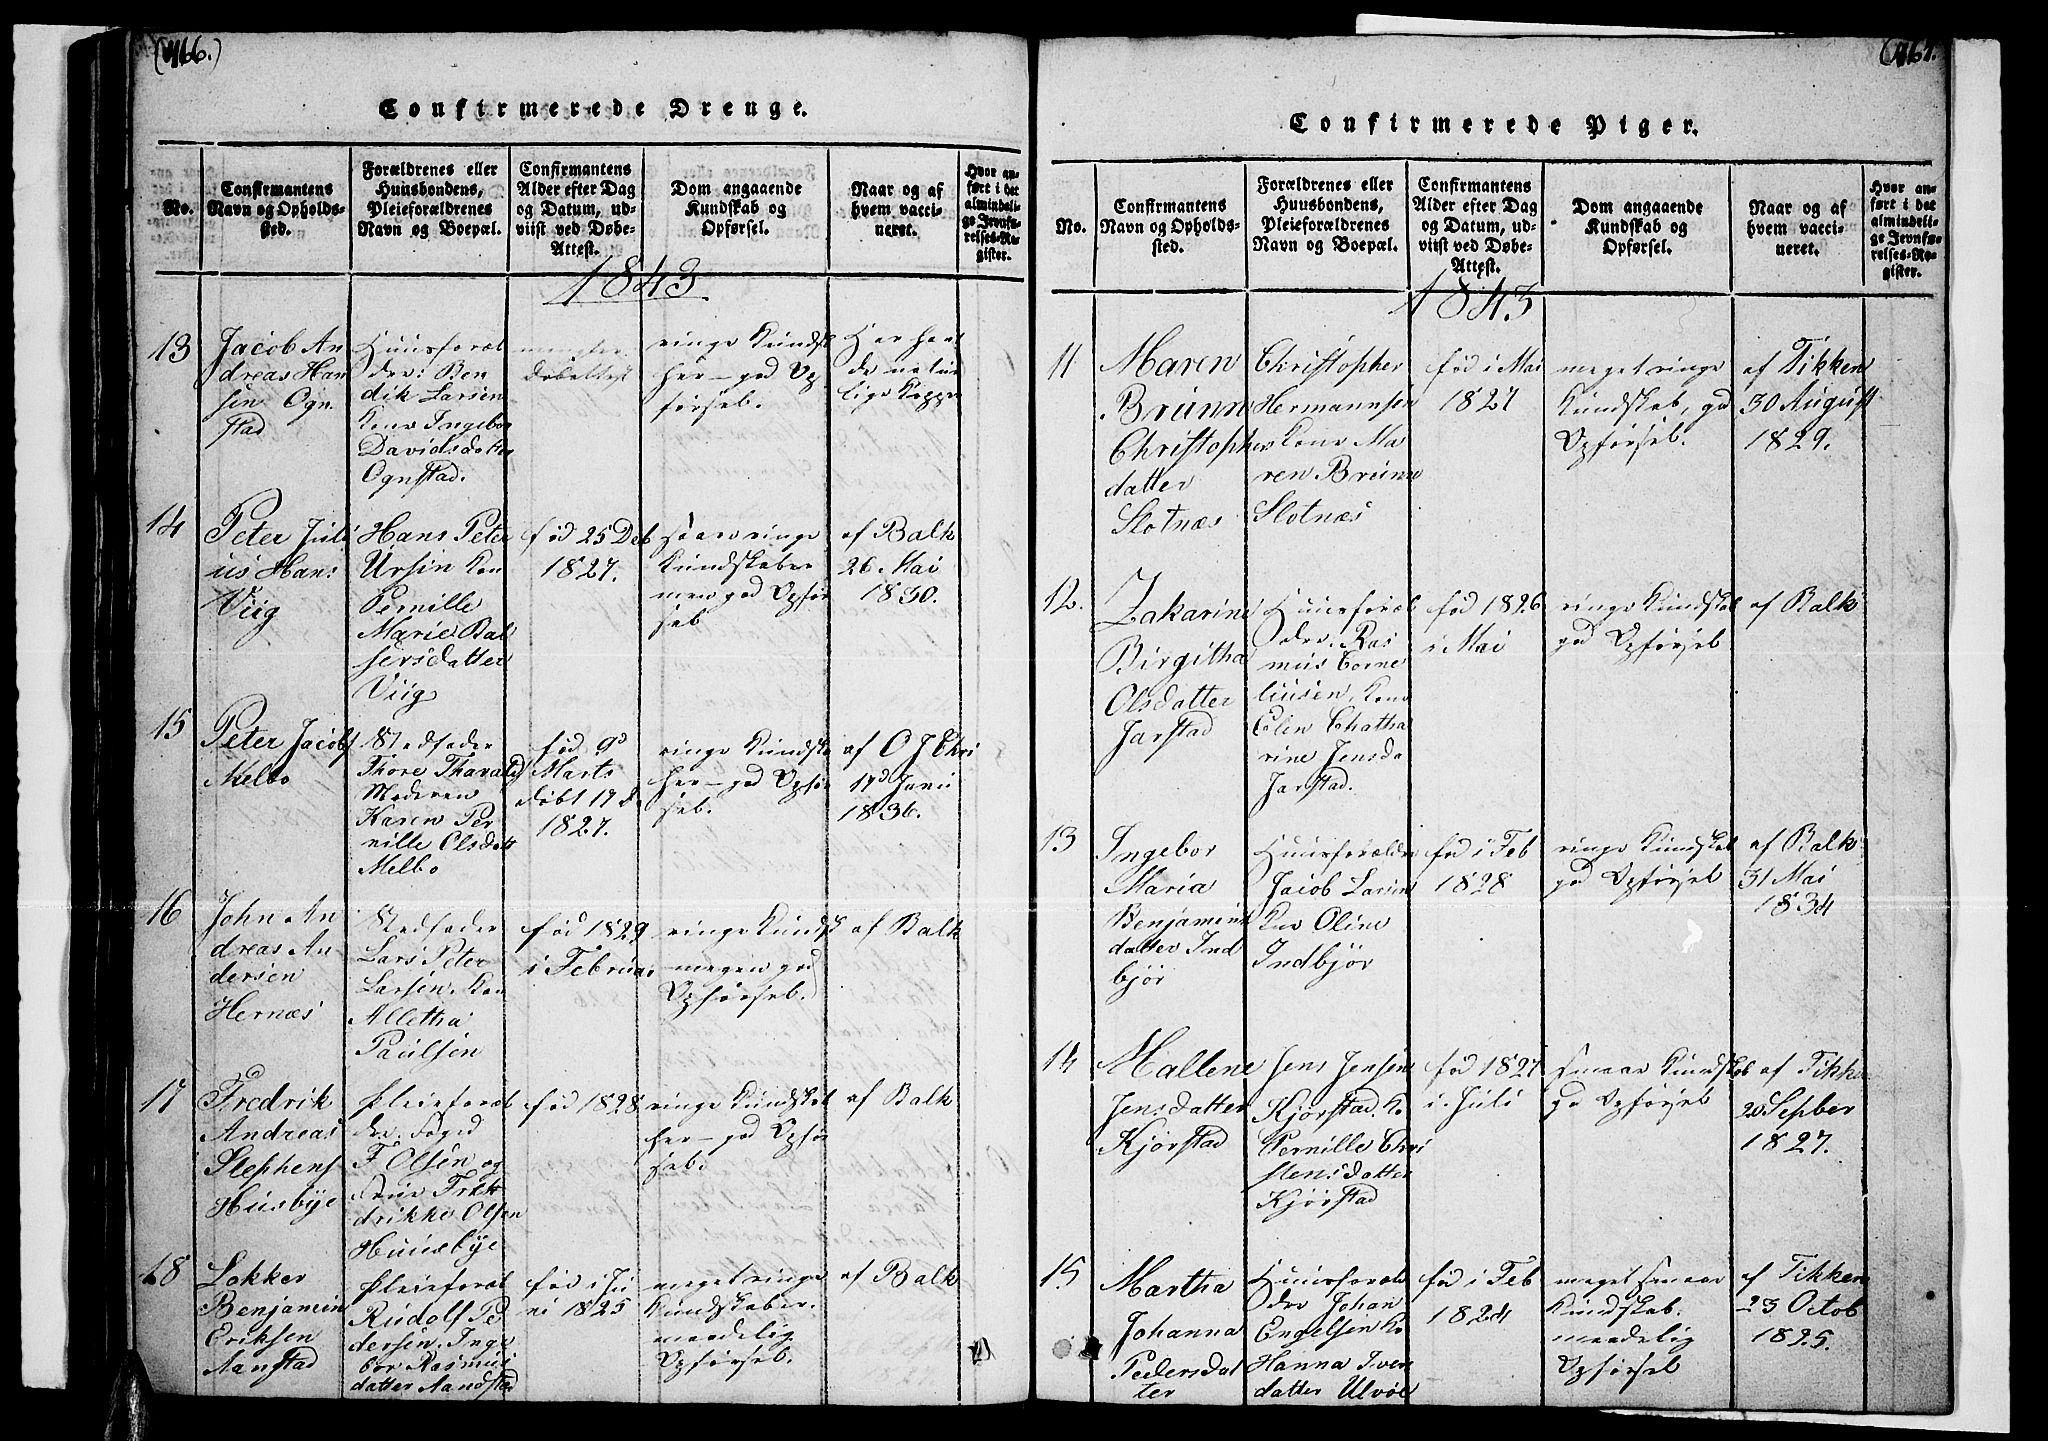 (466.)
Confirmerede Drenge.
No.
Confirmantens
Navn og Opholds-
sted.
Forældrenes eller
Huusbondens,
Pleieforældrenes
Navn og Boepæl.
Confirmantens
Alder efter Dag
og Datum, ud-
viist ved Døbe-
Attest.
Dom angaaende
Kundskab og
Opførsel.
Naar og af
hvem vacci-
neret.
Hvor an-
ført i det
almindeli-
ge Jevnfø-
relses-Re-
gister.
1843
13
Jacob An
dreas Han
sen Ogn
stad
Huusforæl
dre: Ben
dik Larsen
Kone Ingebor
Davidsdatter
Ognstad.
Døbattest
ringe Kundsk
ber – god Op
førsel.
Har hav
de natur
lige Kopper
14
Peter Juli
us Hans
Viig
Hans Peter
Ursin Kon
Pernille
Marie Bal
sersdatter
Viig
fød 25 Deb
1827.
saare ringe
Kundskaber
men god Opfør
sel
af Balk
26 Mai
1830.
15
Peter Jacobs
Melbo
Stedfader
Thore Tharald
Moderen
Karen Per
nille Olsdatt
Melbo
fød 9d
Marts
døbt 17 d
1827.
ringe Kundska
ber – god Opfør
sel.
af O J Chri
17d Juni
1836.
16
John An
dreas An
dersen
Hernæs
Stedfader
Lars Peter
Larsen. Kon
Alletha
Paulsen
fød 1829
i Februar
ringe Kundsk
megen god
Opførsel.
af Balk
17
Fredrik
Andreas
Stephens
Husbye
Pleieforæl
dre. Foged
F Olsen og
Frue Fred
drikke Olsen
Huusbye
fød 1828
ringe Kundska
ber – god Opfør
sel.
af Balk
18
Lokker
Benjamin
Eriksen
Aanstad
Pleieforæl
Rudolf Pe
dersen. Inge
bor Rasmus
datter Aandstad
fød i Ju
ni 1825
meget ringe
Kundskaber.
maadelig
Opførsel.
af Balk
(467.
Confirmerede Piger.
No.
Confirmantens
Navn og Opholds-
sted.
Forældrenes eller
Huusbondens,
Pleieforældrenes
Navn og Boepæl.
Confirmantens
Alder efter Dag
og Datum, ud-
viist ved Døbe-
Attest.
Dom angaaende
Kundskab og
Opførsel.
Naar og af
hvem vacci-
neret.
Hvor an-
ført i det
almindeli-
ge Jevnfø-
relses-Re-
gister.
1843
11
Maren
Bruun
Christophers
datter
Slotnæs
Christopher
Hermannsen
Kone Ma
ren Bruun
Slotnæs
fød i Mai
1827
meget ringe
Kundskab, god
Opførsel.
af Tikken
30 August
1829.
12.
Zakarine
Birgitha
Olsdatter
Jarstad
Huusforæl
dre. Ras
mus Corne
liusen, Kone
Elen Chatha
rine Jensda
Jarstad.
fød 1826
i Mai
ringe Kundskab
god Opførsel
af Balk
13
Ingebor
Maria
Benjamins
datter Ind
bjør
Huusforældre
Jacob Larsen
Kon Oline
Indbjør
fød i Feb
1828
ringe Kundskab
god Opførsel
af Balk
31 Mai
1834
14
Mallene
Jensdatter
Kjørstad
Jens Jensen
Kjørstad. Ko
Pernille Chri
stensdatter
Kjørstad
fød 1827
i Juli
smaae Kundskab
god Opførsel
af Tikken
20 Sepber
1827.
15.
Martha
Johanna
Pedersdat
ter
Huusforæl
dre Johan
Engelsen Ko
Hanna Iver
datter Ulvøe
fød i Feb
1824
meget smaae
Kundskab.
maadelig
Opførsel
af Tikken
23 Octob
1825.